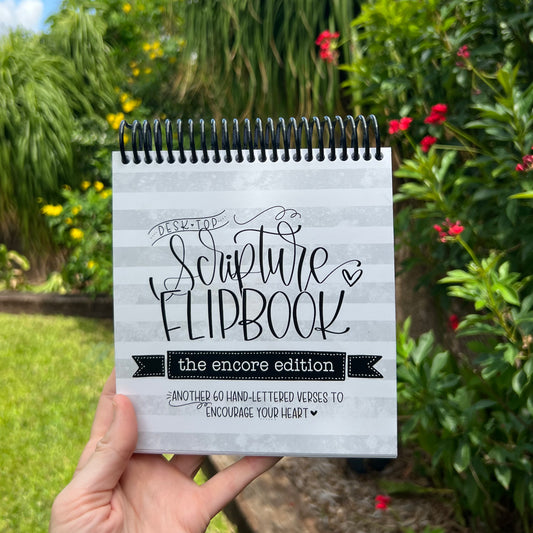 DESK•TOP
Scripture
FLIPBOOK
the encore edition
ANOTHER 60 HAND-LETTERED VERSES TO
ENCOURAGE YOUR HEART ♥